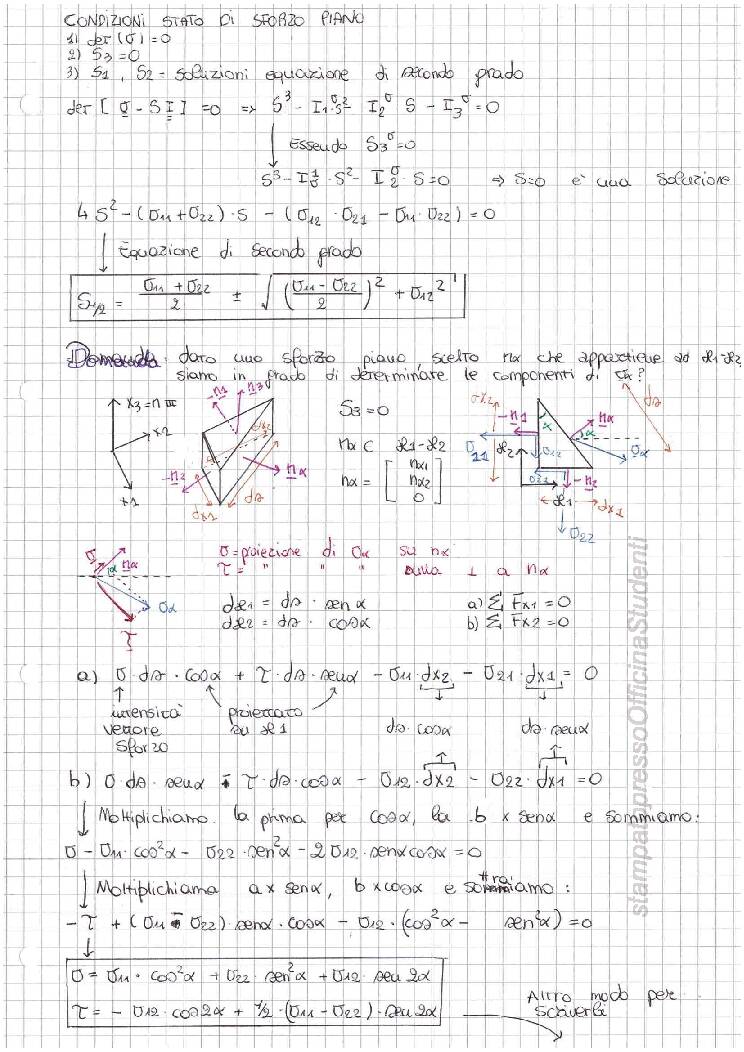 CONDIZIONI STATO DI SFORZO PIANO
1) det(σ)=0
2) S3=0
3) S1, S2 = soluzioni equazione di secondo grado
det [σ - S I] =0 => S³ - I1^σ S² - I2^σ S - I3^σ = 0
Essendo S3^σ=0
S³ - I1^σ · S² - I2^σ · S=0 => S=0 è una soluzione
4 S² - (σ11+σ22)·S - (σ12·σ21 - σ11·σ22) = 0
Equazione di secondo grado
S1/2 = (σ11 + σ22)/2 ± √((σ11 - σ22)/2)² + σ12²
Domanda: dato uno sforzo piano, scelto nα che appartiene ad x1-x2,
siamo in grado di determinare le componenti di σα?
x3=n III
x2
x1
-n1
n3
dx2
-n2
nα
dx1
ds
S3=0
nα ⊂ x1-x2
nα = [nα1 nα2 0]
dx2
-n1
σ11
x2
α
σ12
nα
α
σα
ds
σ21
-n2
x1
dx1
σ22
σ
α
nα
σα
τ
σ=proiezione di σα su nα
τ= " " " sulla ⊥ a nα
dx1 = ds · senα
dx2 = ds · cosα
a) Σ Fx1 = 0
b) Σ Fx2 = 0
a) σ·ds·cosα + τ·ds·senα - σ11·dx2 - σ21·dx1 = 0
intensità
vettore
sforzo
proiettato
su x1
ds·cosα
ds·senα
b) σ·ds·senα - τ·ds·cosα - σ12·dx2 - σ22·dx1 = 0
Moltiplichiamo la prima per cosα, la b x senα e sommiamo:
σ - σ11·cos²α - σ22·sen²α - 2σ12·senαcosα = 0
Moltiplichiamo a x senα, b x cosα e sottraiamo:
-τ + (σ11 - σ22) senα·cosα - σ12·(cos²α - sen²α) = 0
σ = σ11·cos²α + σ22·sen²α + σ12·sen2α
τ = - σ12·cos2α + 1/2·(σ11 - σ22)·sen2α
Altro modo per
scriverli
stampatopressoOfficinaStudenti